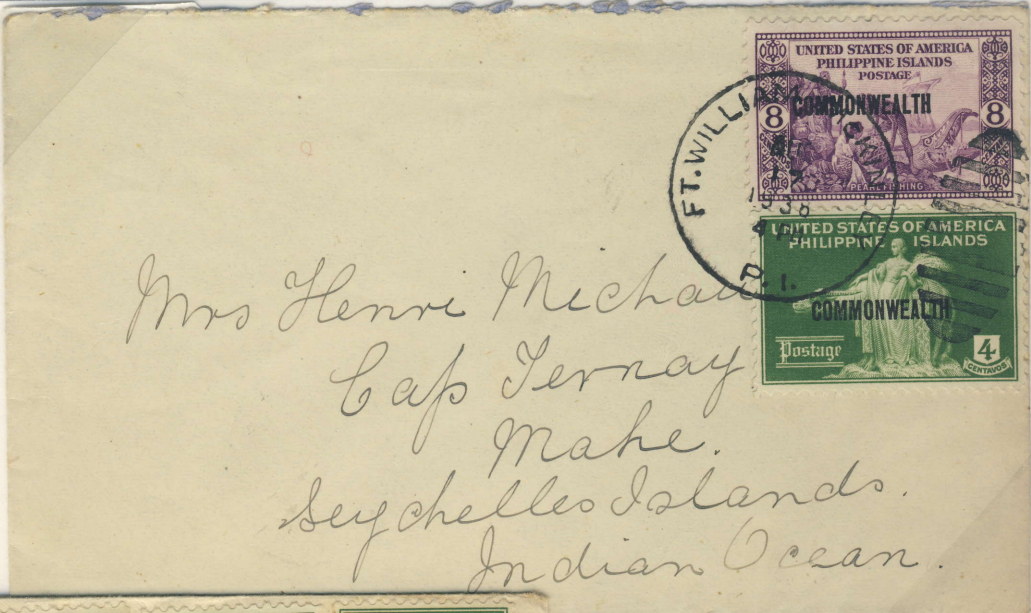 UNITED STATES OF AMERICA
PHILIPPINE ISLANDS
POSTAGE
COMMONWEALTH
8 8
PEARL FISHING
FT. WILLIAM MCKINLEY
1936
P. I.
UNITED STATES OF AMERICA
PHILIPPINE ISLANDS
COMMONWEALTH
Postage
4
CENTAVOS
Mrs Henri
Cap Ternay
Mahe.
Seychelles Islands.
Indian Ocean.